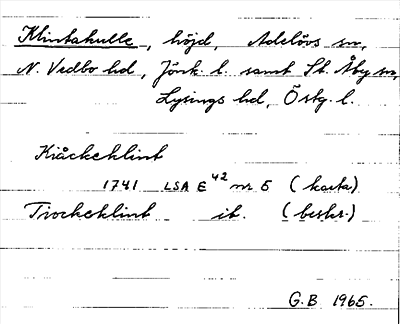 Klintakulle, höjd, Adelövs sn,
N. Vedbo hd, Jönk. l. samt St. Åby sn,
Lysings hd, Östg. l.
Kiåckeklint
1741 LSA E 42 nr 5 (karta)
Tiockeklint ib. (beskr.)
G.B 1965.